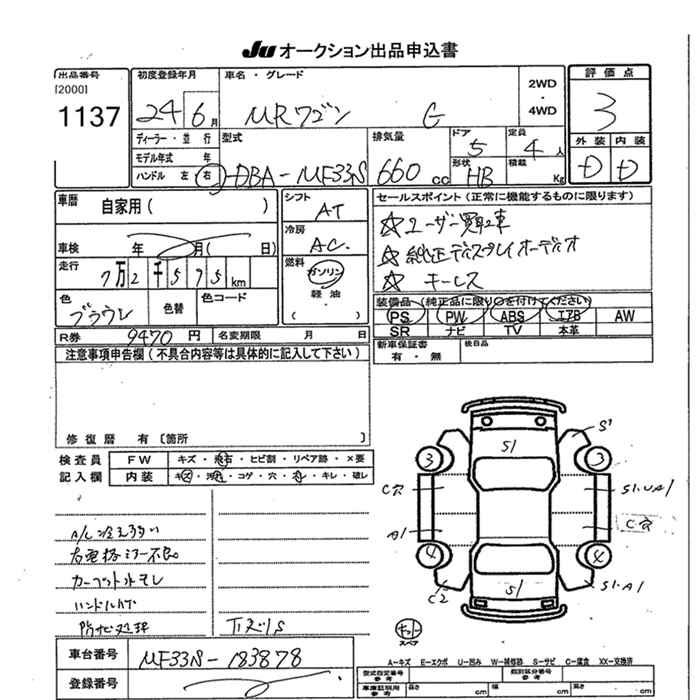 JU オークション出品申込書
出品番号
[2000]
1137
初度登録年月
24 6月
車名・グレード
MRワゴン G
2WD
・
4WD
評価点
3
外装 内装
D D
ディーラー・並行
モデル年式 年
ハンドル 左 右
型式
DBA-MF33S
排気量
660 cc
ドア
5
形状
HB
定員
4人
積載
Kg
車歴
自家用( )
車検 年 月( 日)
走行
7万2千575km
色
色替
色コード
シフト
AT
冷房
AC
燃料
ガソリン
軽油
( )
セールスポイント(正常に機能するものに限ります)
☆ユーザー買取車
☆純正ディスプレイオーディオ
☆キーレス
装備品(純正品に限り○を付けてください)
PS PW ABS エアB AW
SR ナビ TV 本革
R券 9470円
名変期限 月 日
新車保証書
有・無
後日品
注意事項申告欄(不具合内容等は具体的に記入して下さい)
修復歴 有〔箇所 〕
検査員
記入欄
FW キズ・飛石・ヒビ割・リペア跡・×要
内装 キズ・汚れ・コゲ・穴・ ・キレ・破レ
A/C冷え弱い
右電格ミラー不良
ハンドル
S1
S1
3
3
C穴
S1・UA1
A1
C穴
4
4
C2
S1
S1・A1
スペア
車台番号
MF33S-183878
登録番号
A-キズ E-エクボ U-凹み W-補修跡 S-サビ C-腐食 XX-交換済
型式指定番号
参考
類別区分番号
参考
車庫証明用
参考
長さ cm
幅 cm
高さ cm